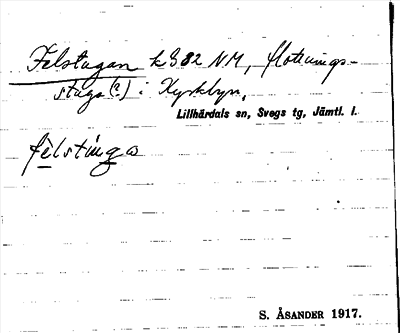 Felstugan k 382 NM, flottnings-
stuga (?) i Kyrkbyn,
Lillhärdals sn, Svegs tg, Jämtl. l.
S. ÅSANDER 1917.